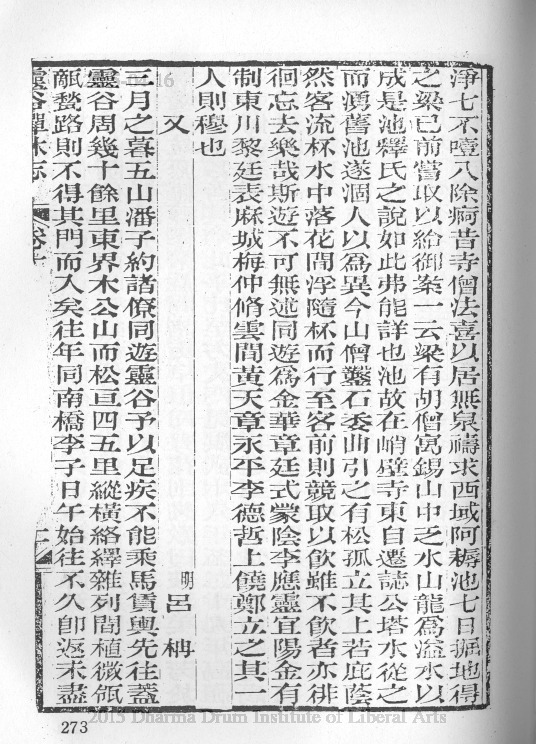 淨七不噎八除痾昔寺僧法喜以居無泉禱求西域阿耨池七日掘地得
之梁已前嘗取以給御案一云梁有胡僧寓錫山中乏水山龍為溢水以
成是池釋氏之說如此弗能詳也池故在峭壁寺東自遷誌公塔水從之
而湧舊池遂涸人以為異今山僧鑿石委曲引之有松孤立其上若庇蔭
然客流杯水中落花間浮隨杯而行至客前則競取以飲雖不飲者亦徘
徊忘去樂哉斯遊不可無述同遊為金華章廷式蒙陰李應靈宜陽金有
制東川黎廷表麻城梅仲脩雲間黃天章永平李德哲上饒鄭立之其一
人則穆也
又
明 呂 柟
三月之暮五山潘子約諸僚同遊靈谷予以足疾不能乘馬賃輿先往蓋
靈谷周幾十餘里東界木公山而松亘四五里縱橫絡繹雜列間植微瓴
甋甃路則不得其門而入矣往年同南橋李子日午始往不久卽返未盡
靈谷禪林志 卷十
273
2015 Dharma Drum Institute of Liberal Arts